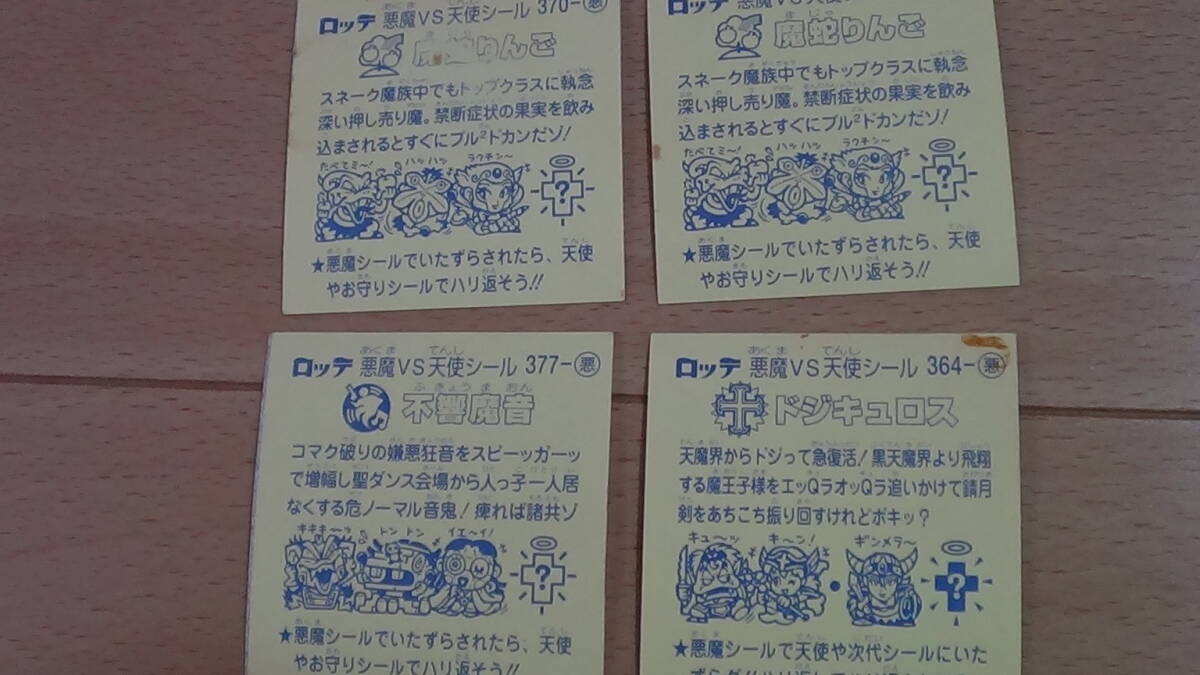 ロッテ 悪魔VS天使シール 370-悪
魔蛇りんご
スネーク魔族中でもトップクラスに執念
深い押し売り魔。禁断症状の果実を飲み
込まされるとすぐにブル²ドカンだゾ!
たべてミ〜! ハッハッ ラクチン〜
?
★悪魔シールでいたずらされたら、天使
やお守りシールでハリ返そう!!
ロッテ 悪魔VS天使シール
魔蛇りんご
スネーク魔族中でもトップクラスに執念
深い押し売り魔。禁断症状の果実を飲み
込まされるとすぐにブル²ドカンだゾ!
たべてミ〜! ハッハッ ラクチン〜
?
★悪魔シールでいたずらされたら、天使
やお守りシールでハリ返そう!!
ロッテ 悪魔VS天使シール 377-悪
不響魔音
コマク破りの嫌悪狂音をスピーッガーッ
で増幅し聖ダンス会場から人っ子一人居
なくする危ノーマル音鬼!痺れば諸共ソ
キキキ〜ッ トントン イエ〜イ!
?
★悪魔シールでいたずらされたら、天使
やお守りシールでハリ返そう!!
ロッテ 悪魔VS天使シール 364-悪
ドジキュロス
天魔界からドジって急復活!黒天魔界より飛翔
する魔王子様をエッQラオッQラ追いかけて錆月
剣をあちこち振り回すけれどポキッ?
キュ〜ッ キ〜ン! ギンメラ〜
?
★悪魔シールで天使や次代シールにいた